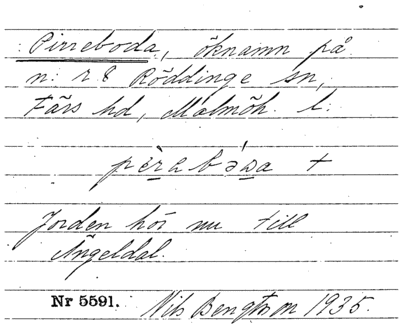 : Pirreboda, öknamn på
n: r 8 Röddinge sn,
Färs hd, Malmöh. l.
pèrabósa +
Jorden hör nu till
Ängeldal.
Nr 5591. Nils Bengtsson 1935.